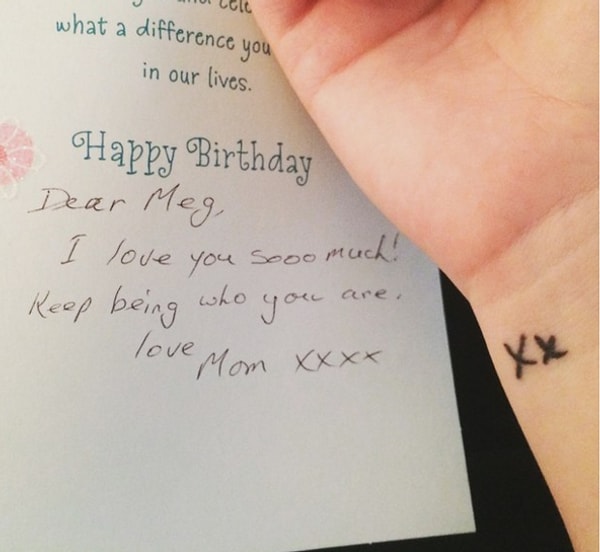 what a difference you
in our lives.
Happy Birthday
Dear Meg,
I love you sooo much!
Keep being who you are.
love Mom xxxx
xx